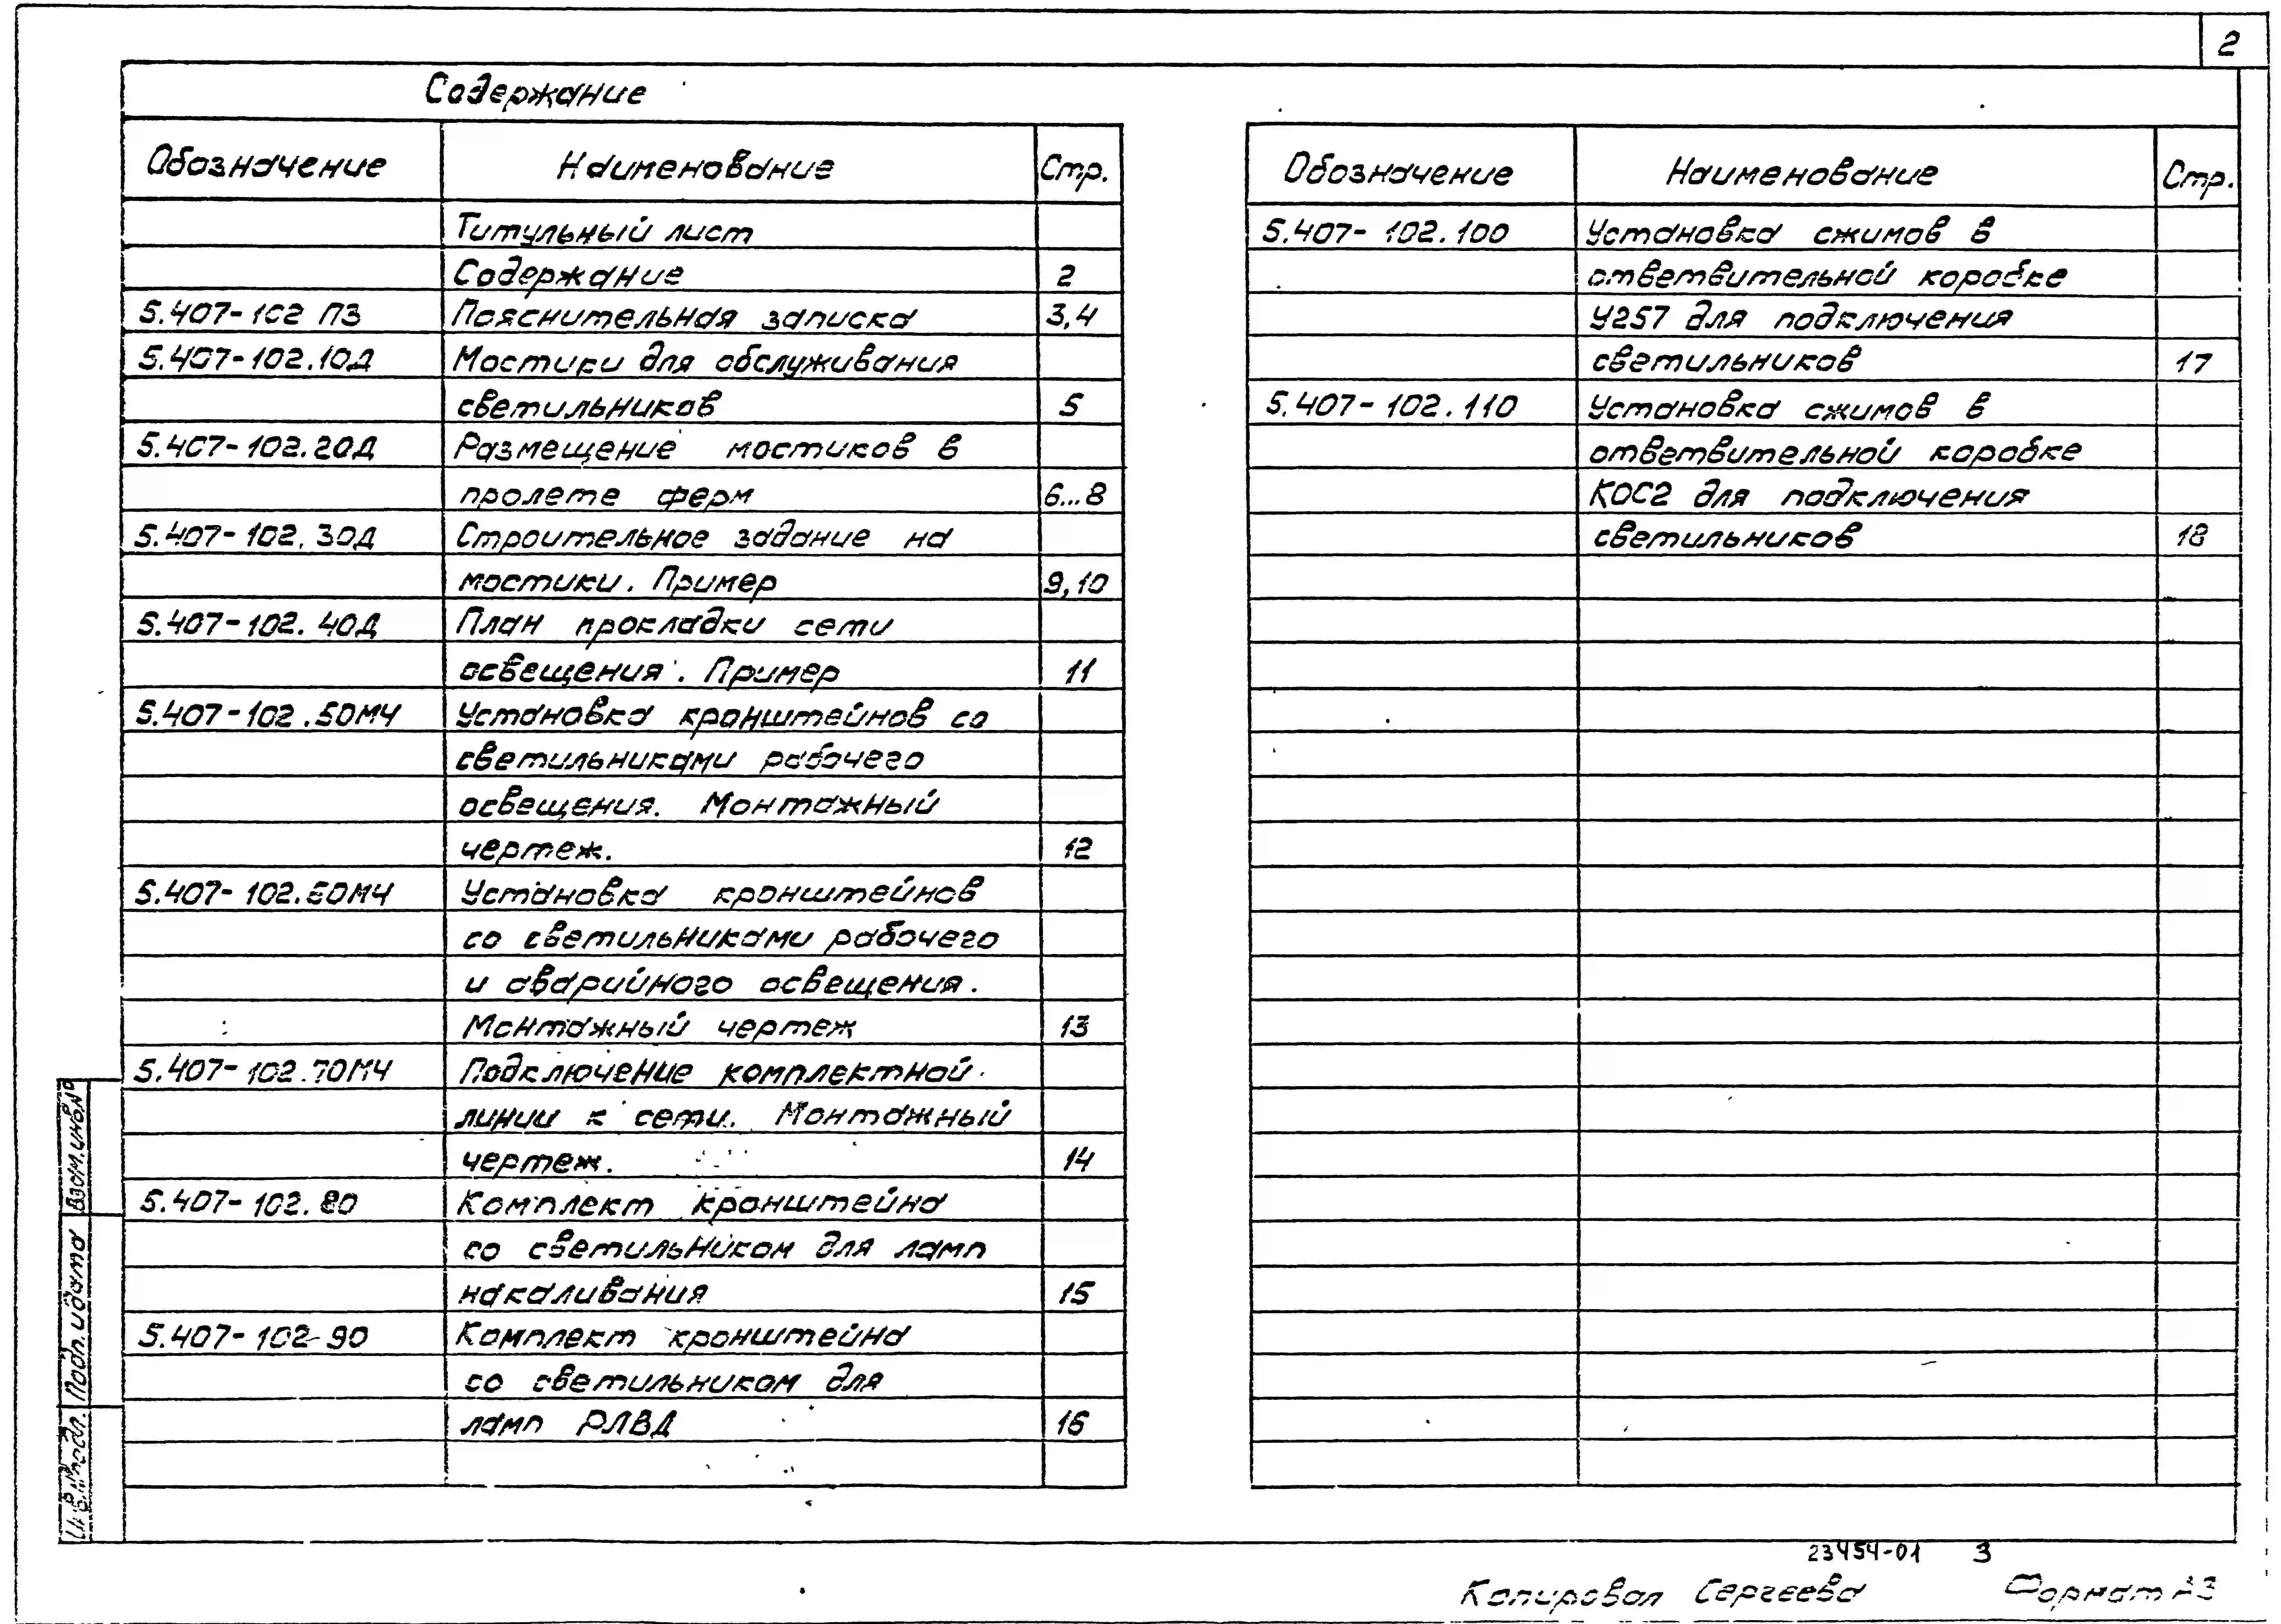 2
Содержание
Обозначение Наименование Стр.
Титульный лист
Содержание 2
5.407-102 ПЗ Пояснительная записка 3,4
5.407-102.10Д Мостики для обслуживания
светильников 5
5.407-102.20Д Размещение мостиков в
пролете ферм 6...8
5.407-102.30Д Строительное задание на
мостики. Пример 9,10
5.407-102.40Д План прокладки сети
освещения. Пример 11
5.407-102.50МЧ Установка кронштейнов со
светильниками рабочего
освещения. Монтажный
чертеж. 12
5.407-102.60МЧ Установка кронштейнов
со светильниками рабочего
и аварийного освещения.
Монтажный чертеж 13
5.407-102.70МЧ Подключение комплектной
линии к сети. Монтажный
чертеж. 14
5.407-102.80 Комплект кронштейна
со светильником для ламп
накаливания 15
5.407-102-90 Комплект кронштейна
со светильником для
ламп РЛВД 16
Обозначение Наименование Стр.
5.407-102.100 Установка сжимов в
ответвительной коробке
У257 для подключения
светильников 17
5.407-102.110 Установка сжимов в
ответвительной коробке
КОС2 для подключения
светильников 18
Взам.инв.№
Подп. и дата
Инв.№подл.
23454-01 3
Копировал Сергеева Формат А3